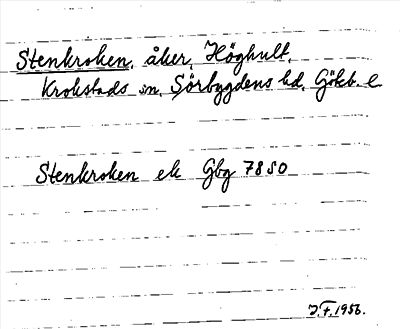 Stenkroken, åker, Höghult,
Krokstads sn. Sörbygdens hd. Göteb. l
Stenkroken ek Gbg 7850
J.F. 1956.